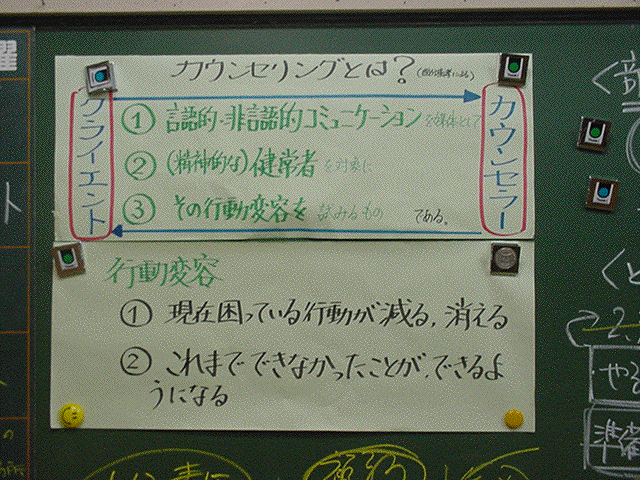 カウンセリングとは?
クライエント
カウンセラー
① 言語的・非言語的コミュニケーションを媒体として
② (精神的な)健常者を対象に
③ その行動変容を 試みるもの である。
行動変容
① 現在困っている行動が減る, 消える
② これまでできなかったことが, できるよ
うになる